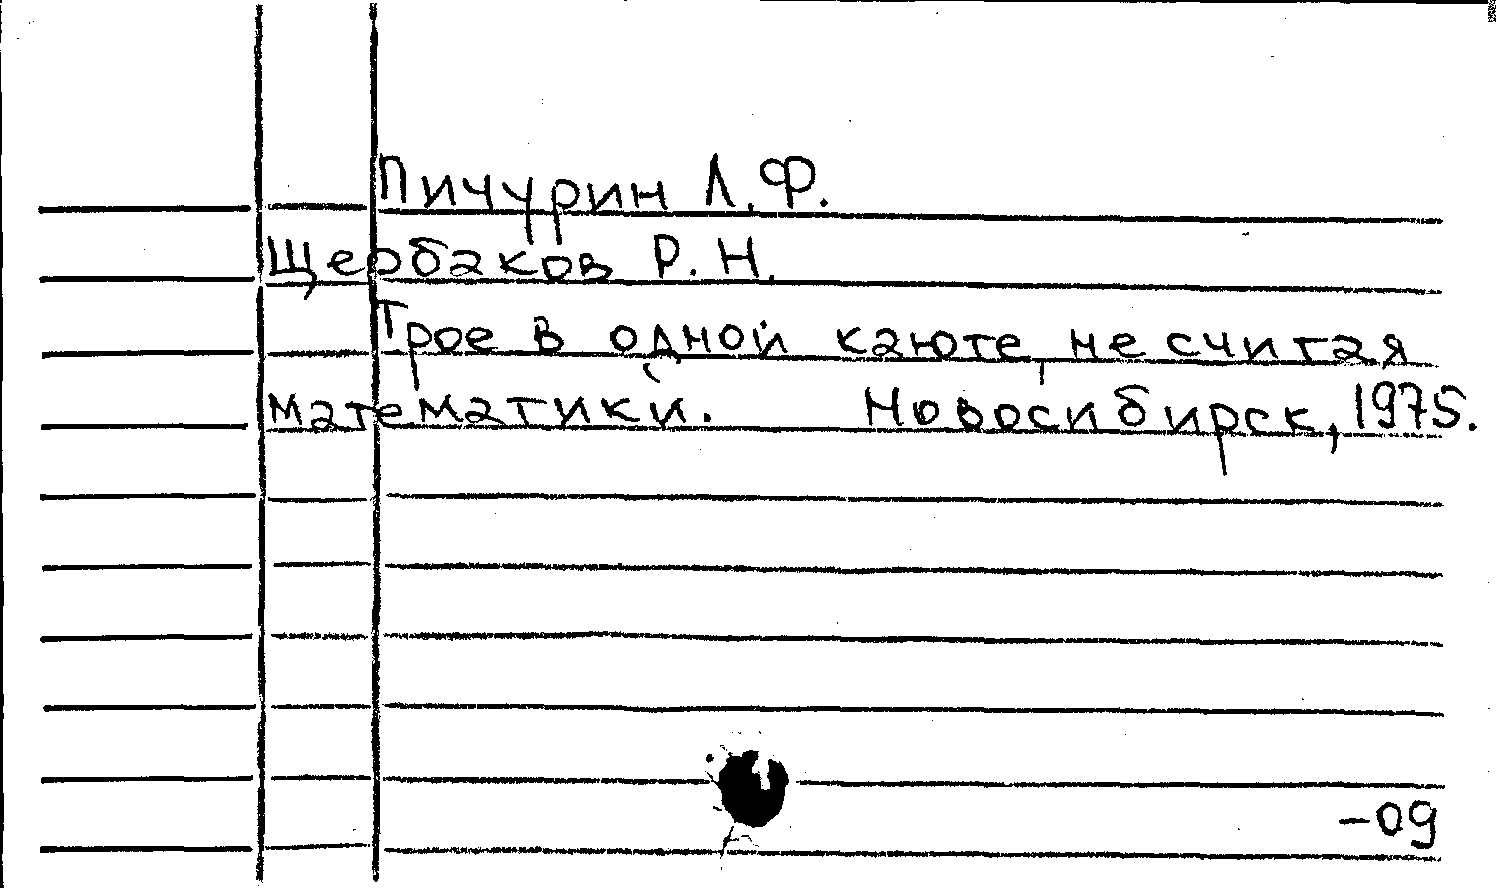 Пичурин Л.Ф.
Щербаков Р.Н.
Трое в одной каюте, не считая
математики. Новосибирск, 1975.
-09